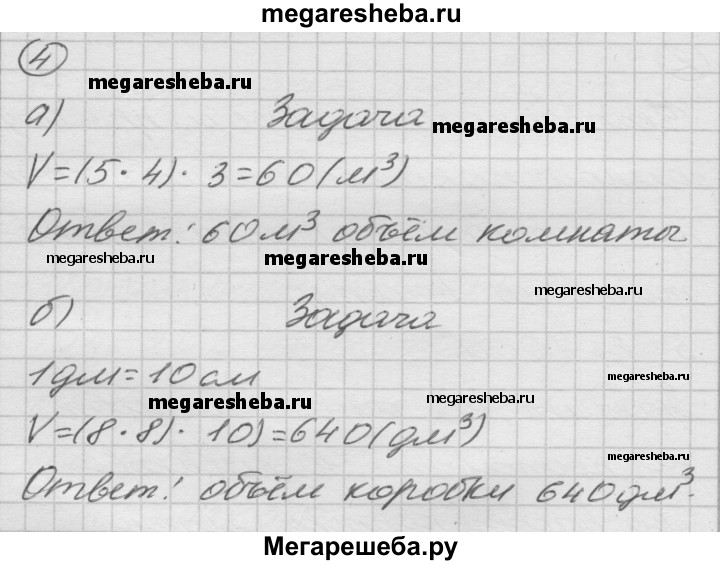 megaresheba.ru
4
megaresheba.ru
а) Задача
megaresheba.ru
V=(5·4)·3=60(м³)
Ответ: 60м³ объём комнаты
megaresheba.ru megaresheba.ru
megaresheba.ru
б) Задача
1дм=10см
megaresheba.ru
megaresheba.ru megaresheba.ru
V=(8·8)·10)=640(дм³)
megaresheba.ru
Ответ: объём коробки 640дм³.
Мегарешеба.ру